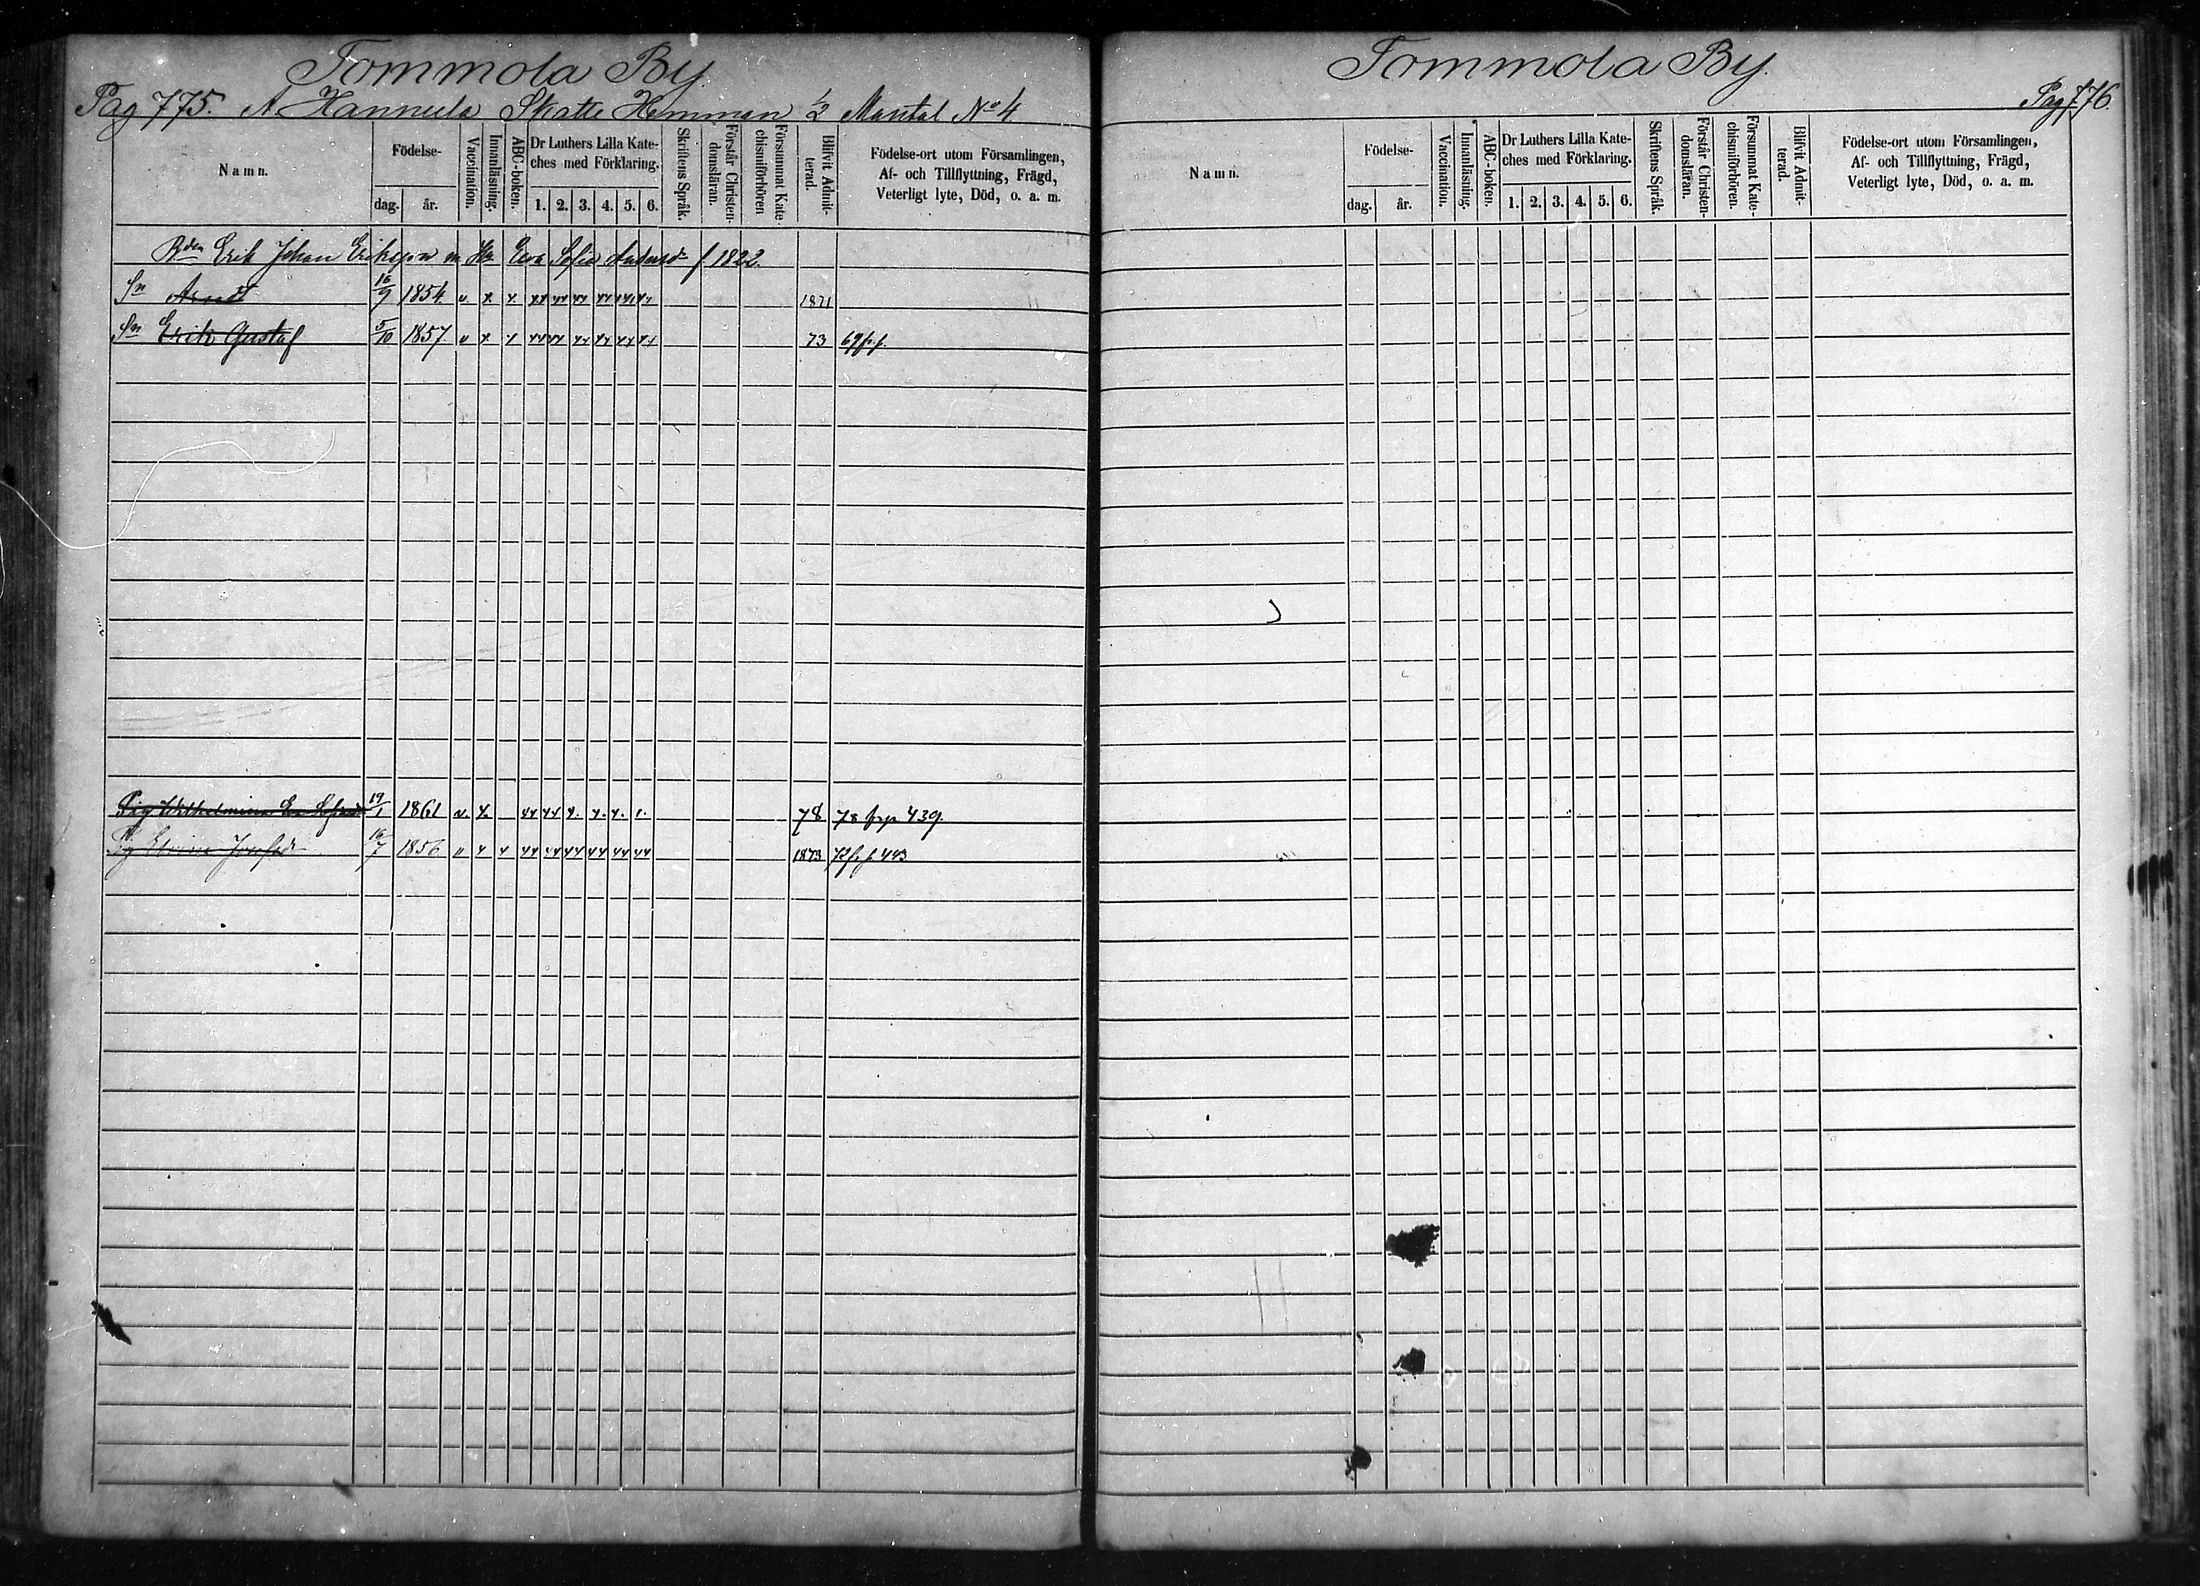 Tommola By
Pag 775. A Hannula Skatte Hemman 1/2 Mantal No 4
Namn. Födelse- dag. år. Vaccination. Innanläsning. ABC-boken. Dr Luthers Lilla Kate-ches med Förklaring. 1. 2. 3. 4. 5. 6. Skriftens Språk. Förstår Christen-domsläran. Försummat Kate-chismiförhören Blifvit Admit-terad. Födelse-ort utom Församlingen, Af- och Tillflyttning, Frägd, Veterligt lyte, Död, o. a. m.
Bden Erik Johan Eriksson m Hu Eva Sofia Andersdr f 1822.
Sn 16/9 1854 1871
Sn Erik Gustaf 5/10 1857 73
Pig Wilhelmina 19/1 1861 78 78 439.
16/7 1856 1873 443
Tommola By
Pag 776.
Namn. Födelse- dag. år. Vaccination. Innanläsning. ABC-boken. Dr Luthers Lilla Kate-ches med Förklaring. 1. 2. 3. 4. 5. 6. Skriftens Språk. Förstår Christen-domsläran. Försummat Kate-chismiförhören. Blifvit Admit-terad. Födelse-ort utom Församlingen, Af- och Tillflyttning, Frägd, Veterligt lyte, Död, o. a. m.